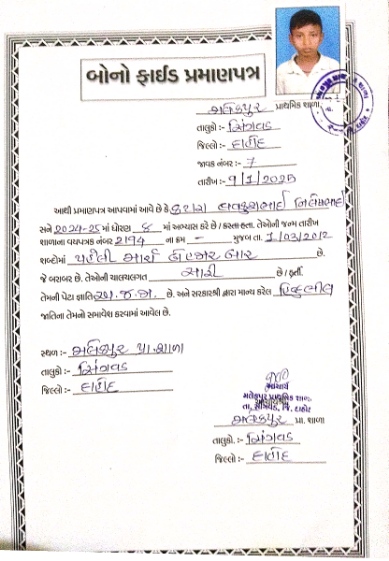 બોનો ફાઈડ પ્રમાણપત્ર
મલેકપુર પ્રાથમિક શાળા,
તાલુકો :- સિંગવડ
જિલ્લો :- દાહોદ
જાવક નંબર :- 7
તારીખ :- 9/1/2025
આથી પ્રમાણપત્ર આપવામાં આવે છે કે
સને 2024-25 માં ધોરણ 8 માં અભ્યાસ કરે છે / કરતા હતા. તેઓની જન્મ તારીખ
શાળાના વયપત્રક નંબર 2194 ના ક્રમ - મુજબ તા. 1/03/2012
શબ્દોમાં પહેલી માર્ચ બે હજાર બાર છે.
જે બરાબર છે. તેઓની ચાલચલગત સારી છે / હતી.
તેમની પેટા જ્ઞાતિ અ.જ.જા. છે. અને સરકારશ્રી દ્વારા માન્ય કરેલ હિન્દુ ભીલ
જાતિના તેમનો સમાવેશ કરવામાં આવેલ છે.
સ્થળ :- મલેકપુર પ્રા.શાળા
તાલુકો :- સિંગવડ
જિલ્લો :- દાહોદ
આચાર્ય
મલેકપુર પ્રાથમિક શાળા
તા. સીંગવડ, જિ. દાહોદ
મલેકપુર પ્રા. શાળા
તાલુકો. :- સિંગવડ
જિલ્લો :- દાહોદ